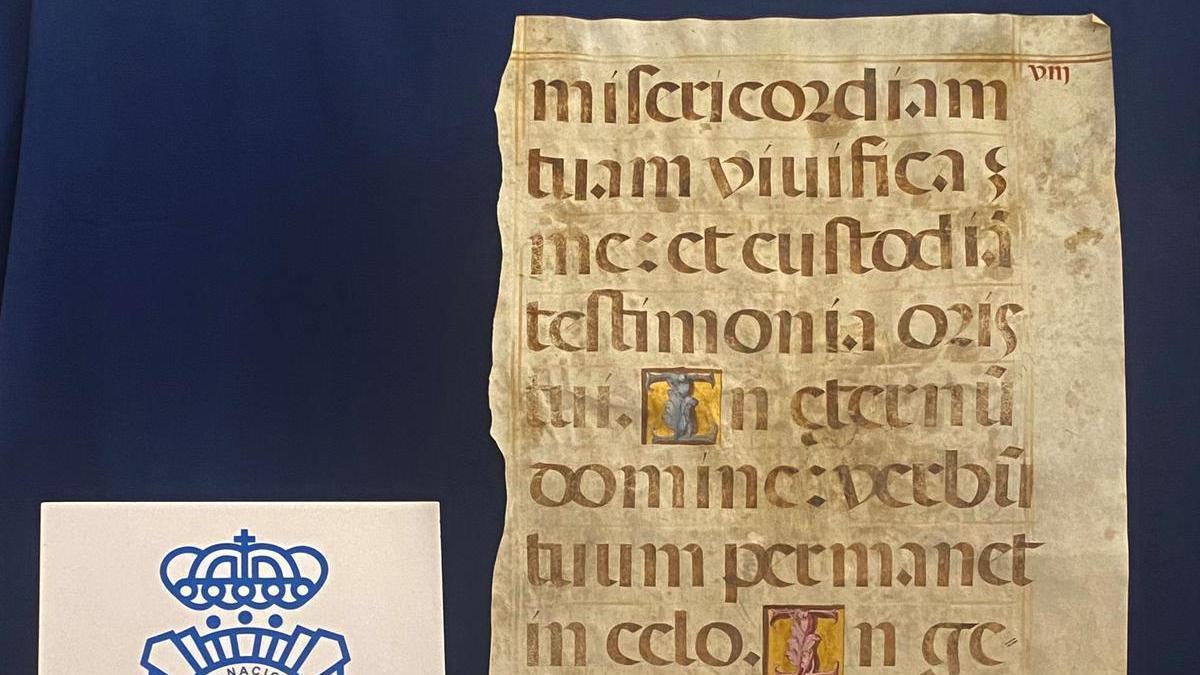 misericordiam
viij
tuam viuifica
me: et custodiā
testimonia oris
tui. In ęternū
domine: verbū
tuum permanet
in celo. In ge-
NACIO